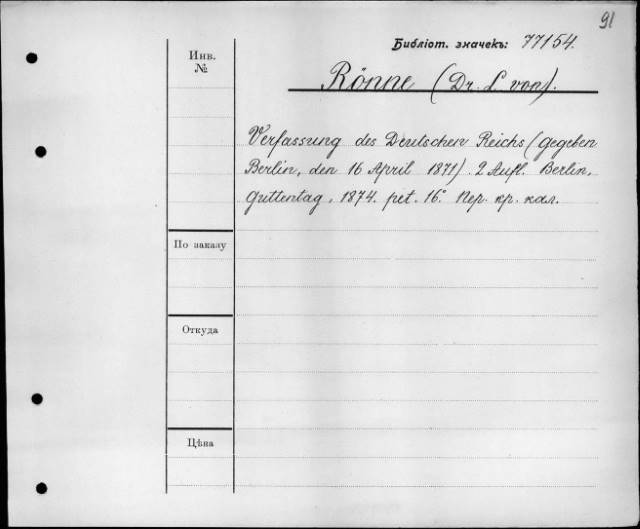 91
Библіот. значекъ: 77154.
Инв.
№
Rönne (Dr. L. von).
Verfassung des Deutschen Reichs (gegeben
Berlin, den 16 April 1871). 2 Aufl. Berlin,
Guttentag, 1874. pet. 16º Пер. кр. кал.
По заказу
Откуда
Цѣна